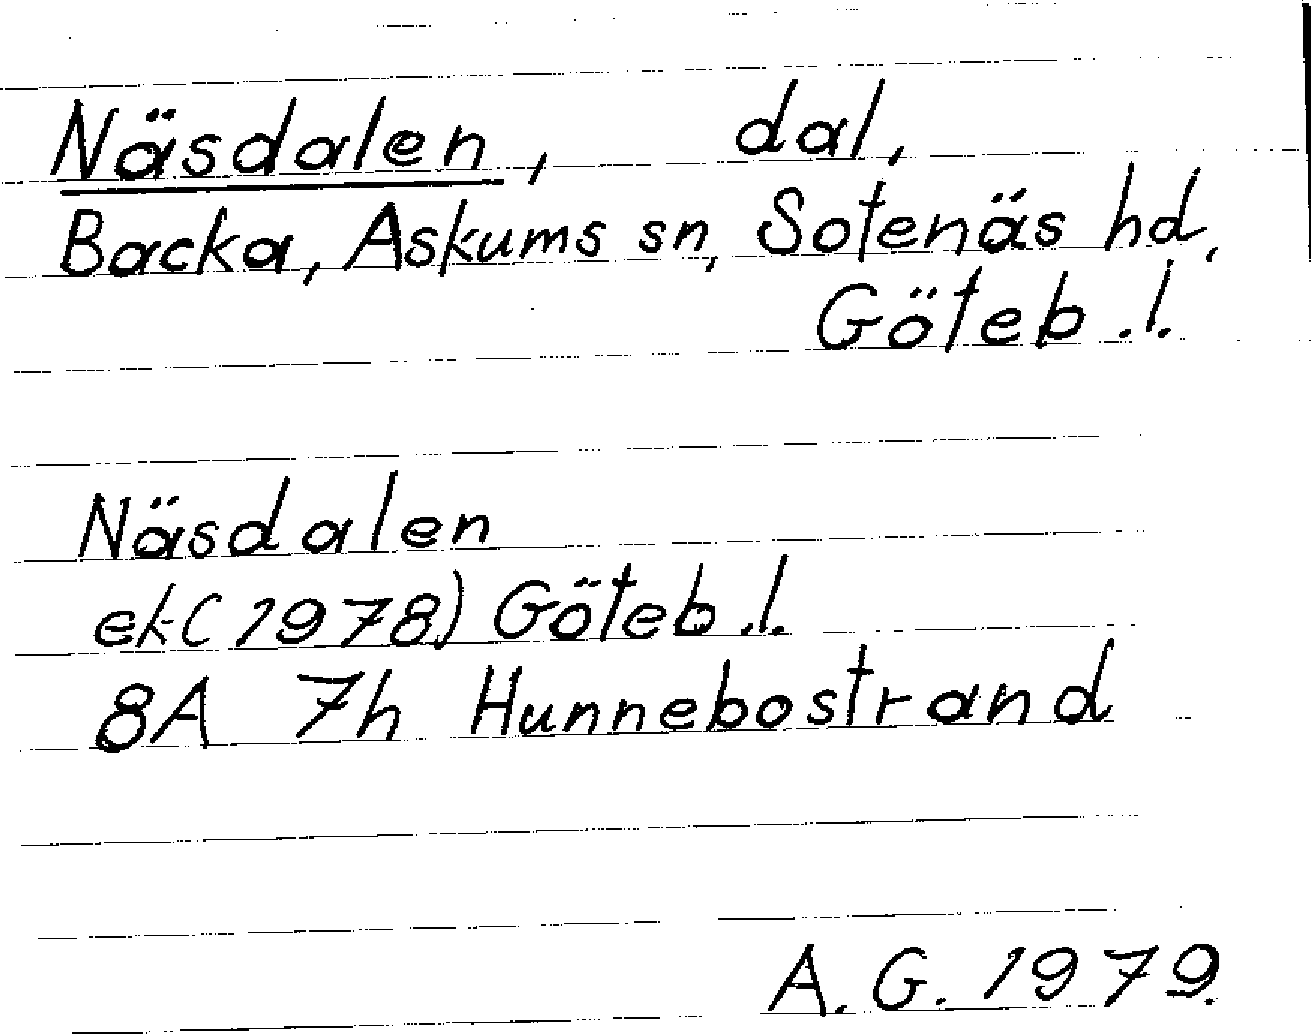 Näsdalen, dal,
Backa, Askums sn, Sotenäs hd,
Göteb.l.
Näsdalen
ek (1978) Göteb.l.
8A 7h Hunnebostrand
A.G. 1979.